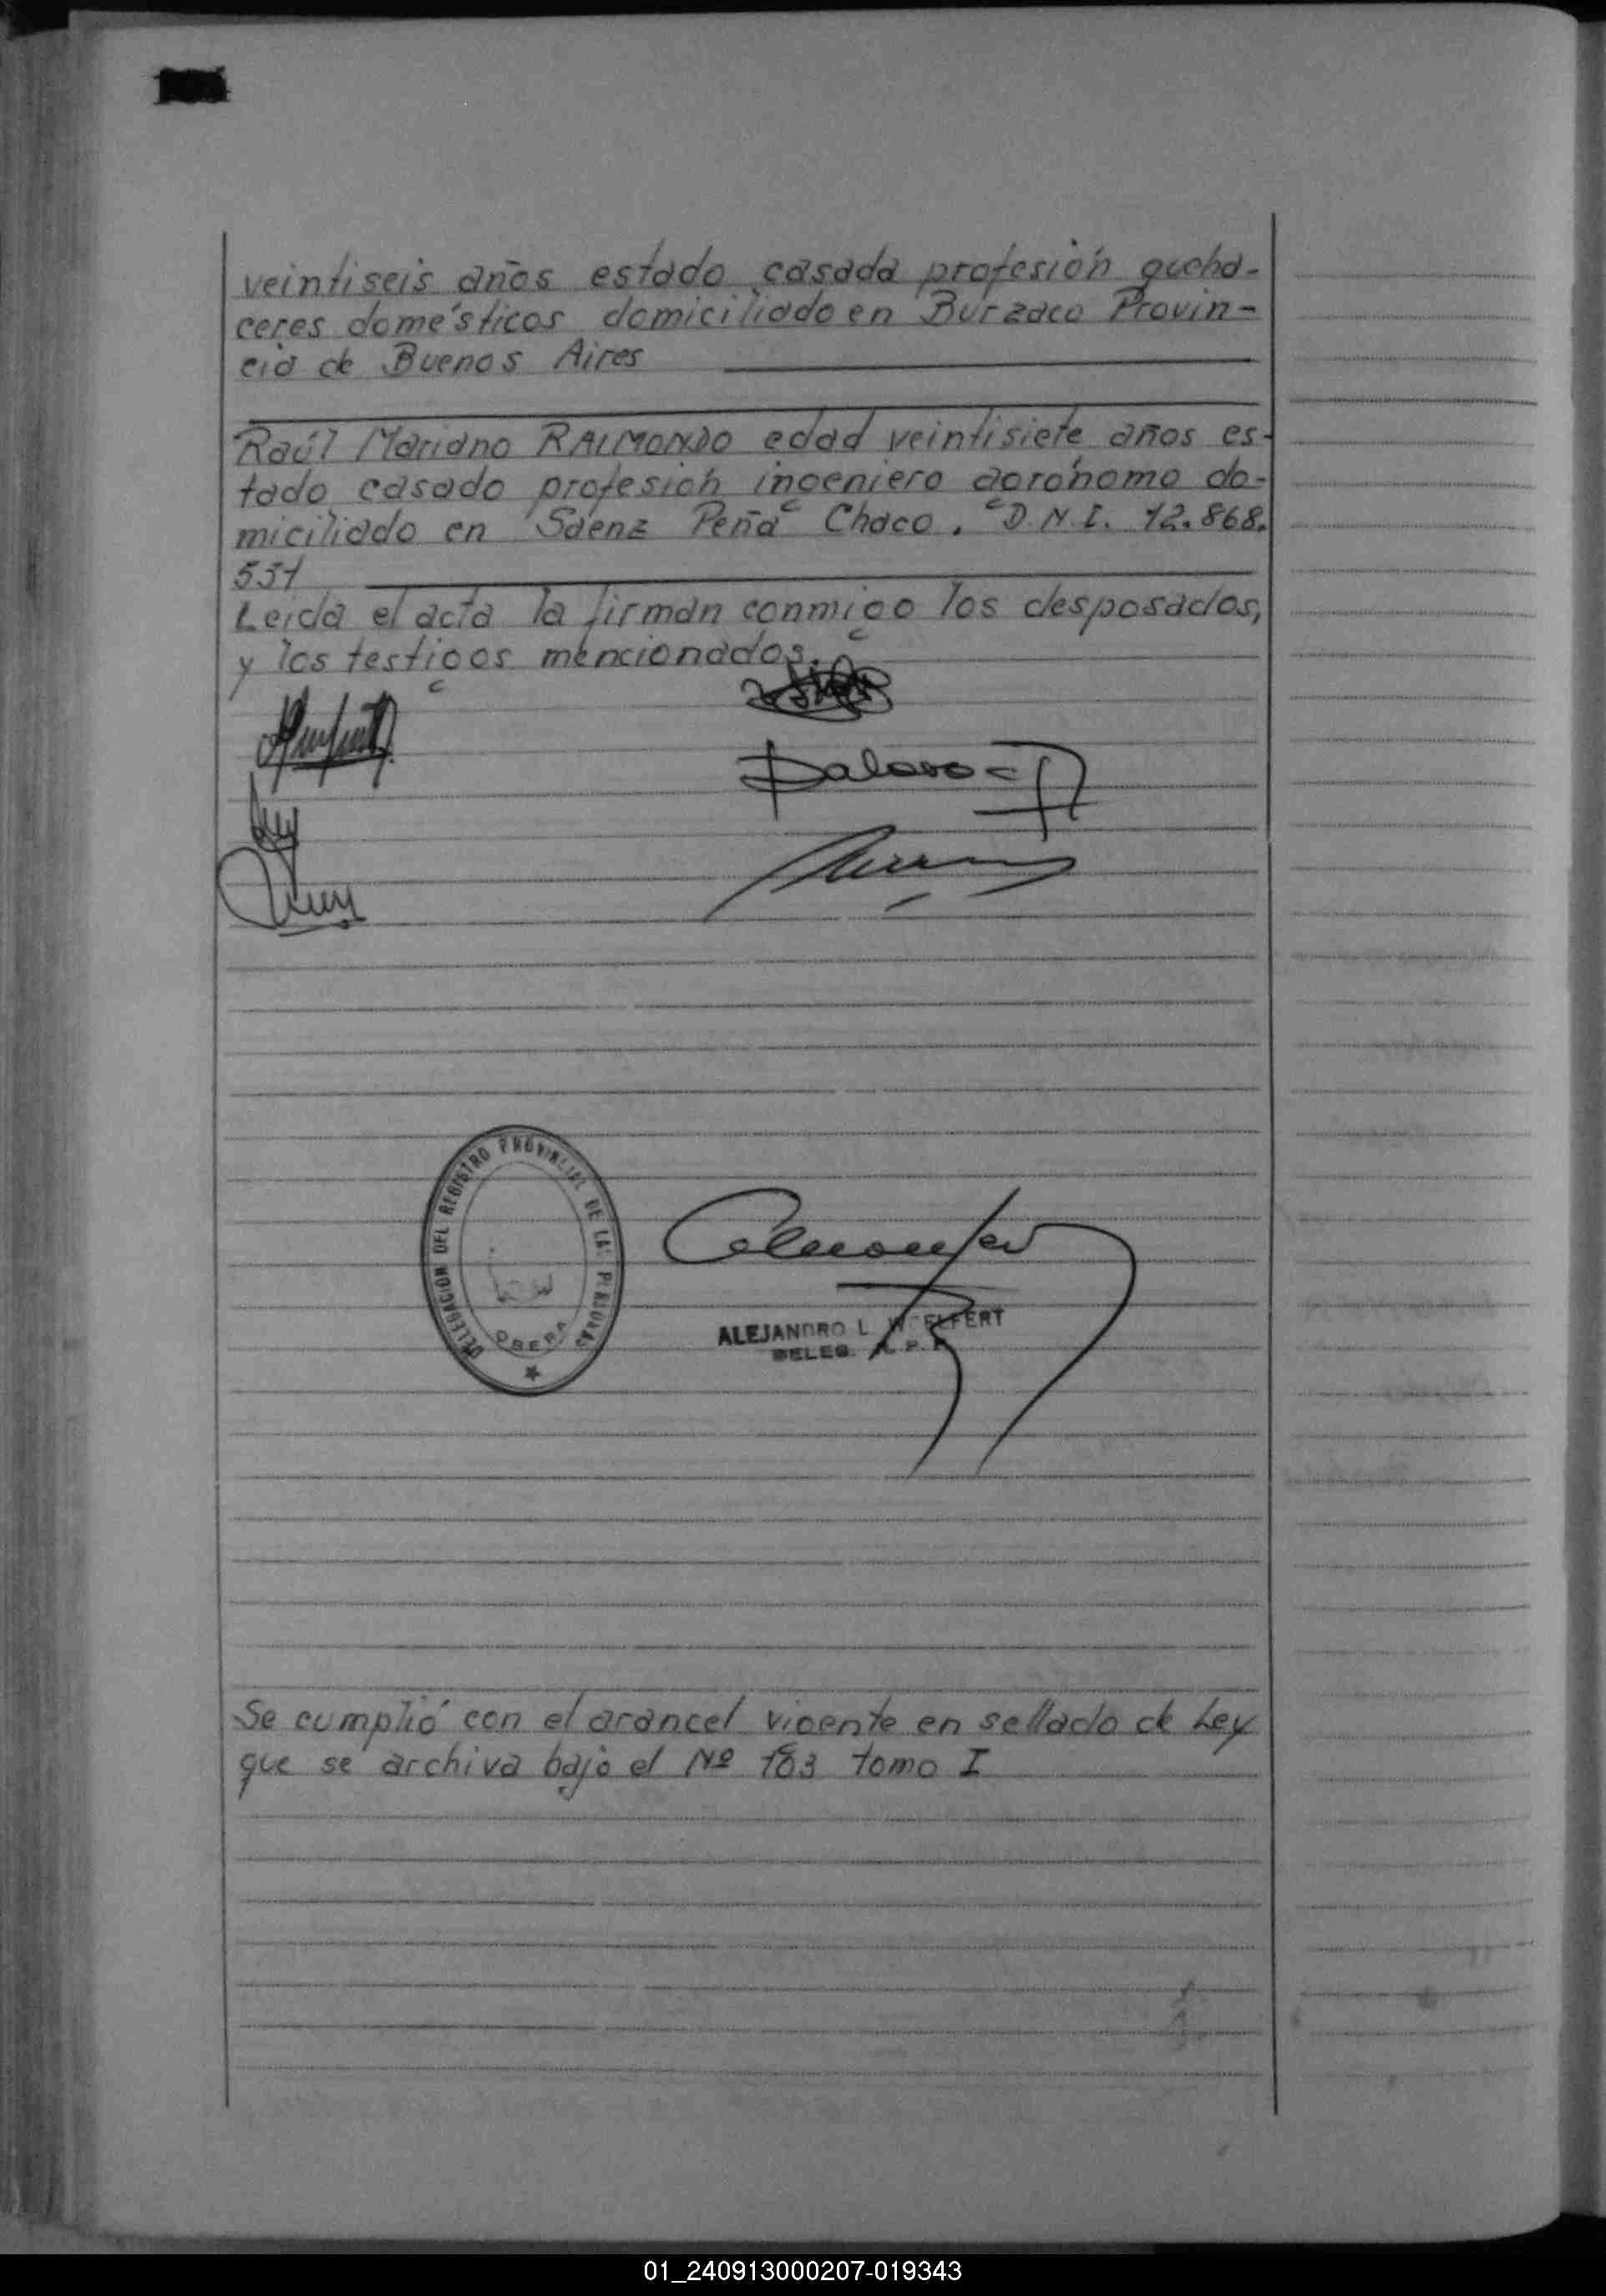 veintiseis años estado casada profesión queha-
ceres domésticos domiciliado en Burzaco Provin-
cia de Buenos Aires
Raúl Mariano RAIMONDO edad veintisiete años es-
tado casado profesión ingeniero agrónomo do-
miciliado en Sáenz Peña Chaco. D.N.I. 12.868.
551
Leida el acta la firman conmigo los desposados,
y los testigos mencionados.
DELEGACION DEL REGISTRO PROVINCIAL DE LAS PERSONAS
OBERA
ALEJANDRO L. WOELFERT
DELEG. R. P. P.
Se cumplió con el arancel vigente en sellado de Ley
que se archiva bajo el Nº 183 tomo I
01_240913000207-019343